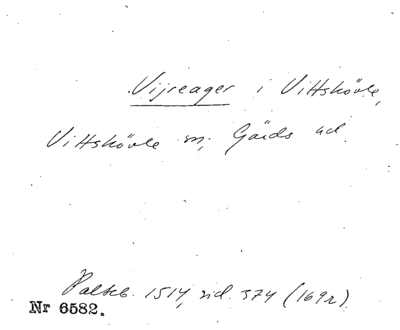 Vijreager i Vittskövle,
Vittskövle sn, Gärds hd.
Palteb. 1514, sid. 374 (169r).
Nr 6582.